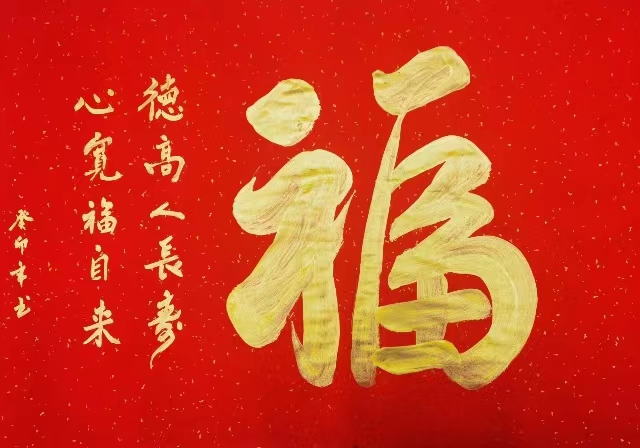 福
德高人長壽
心寬福自来
癸卯年书